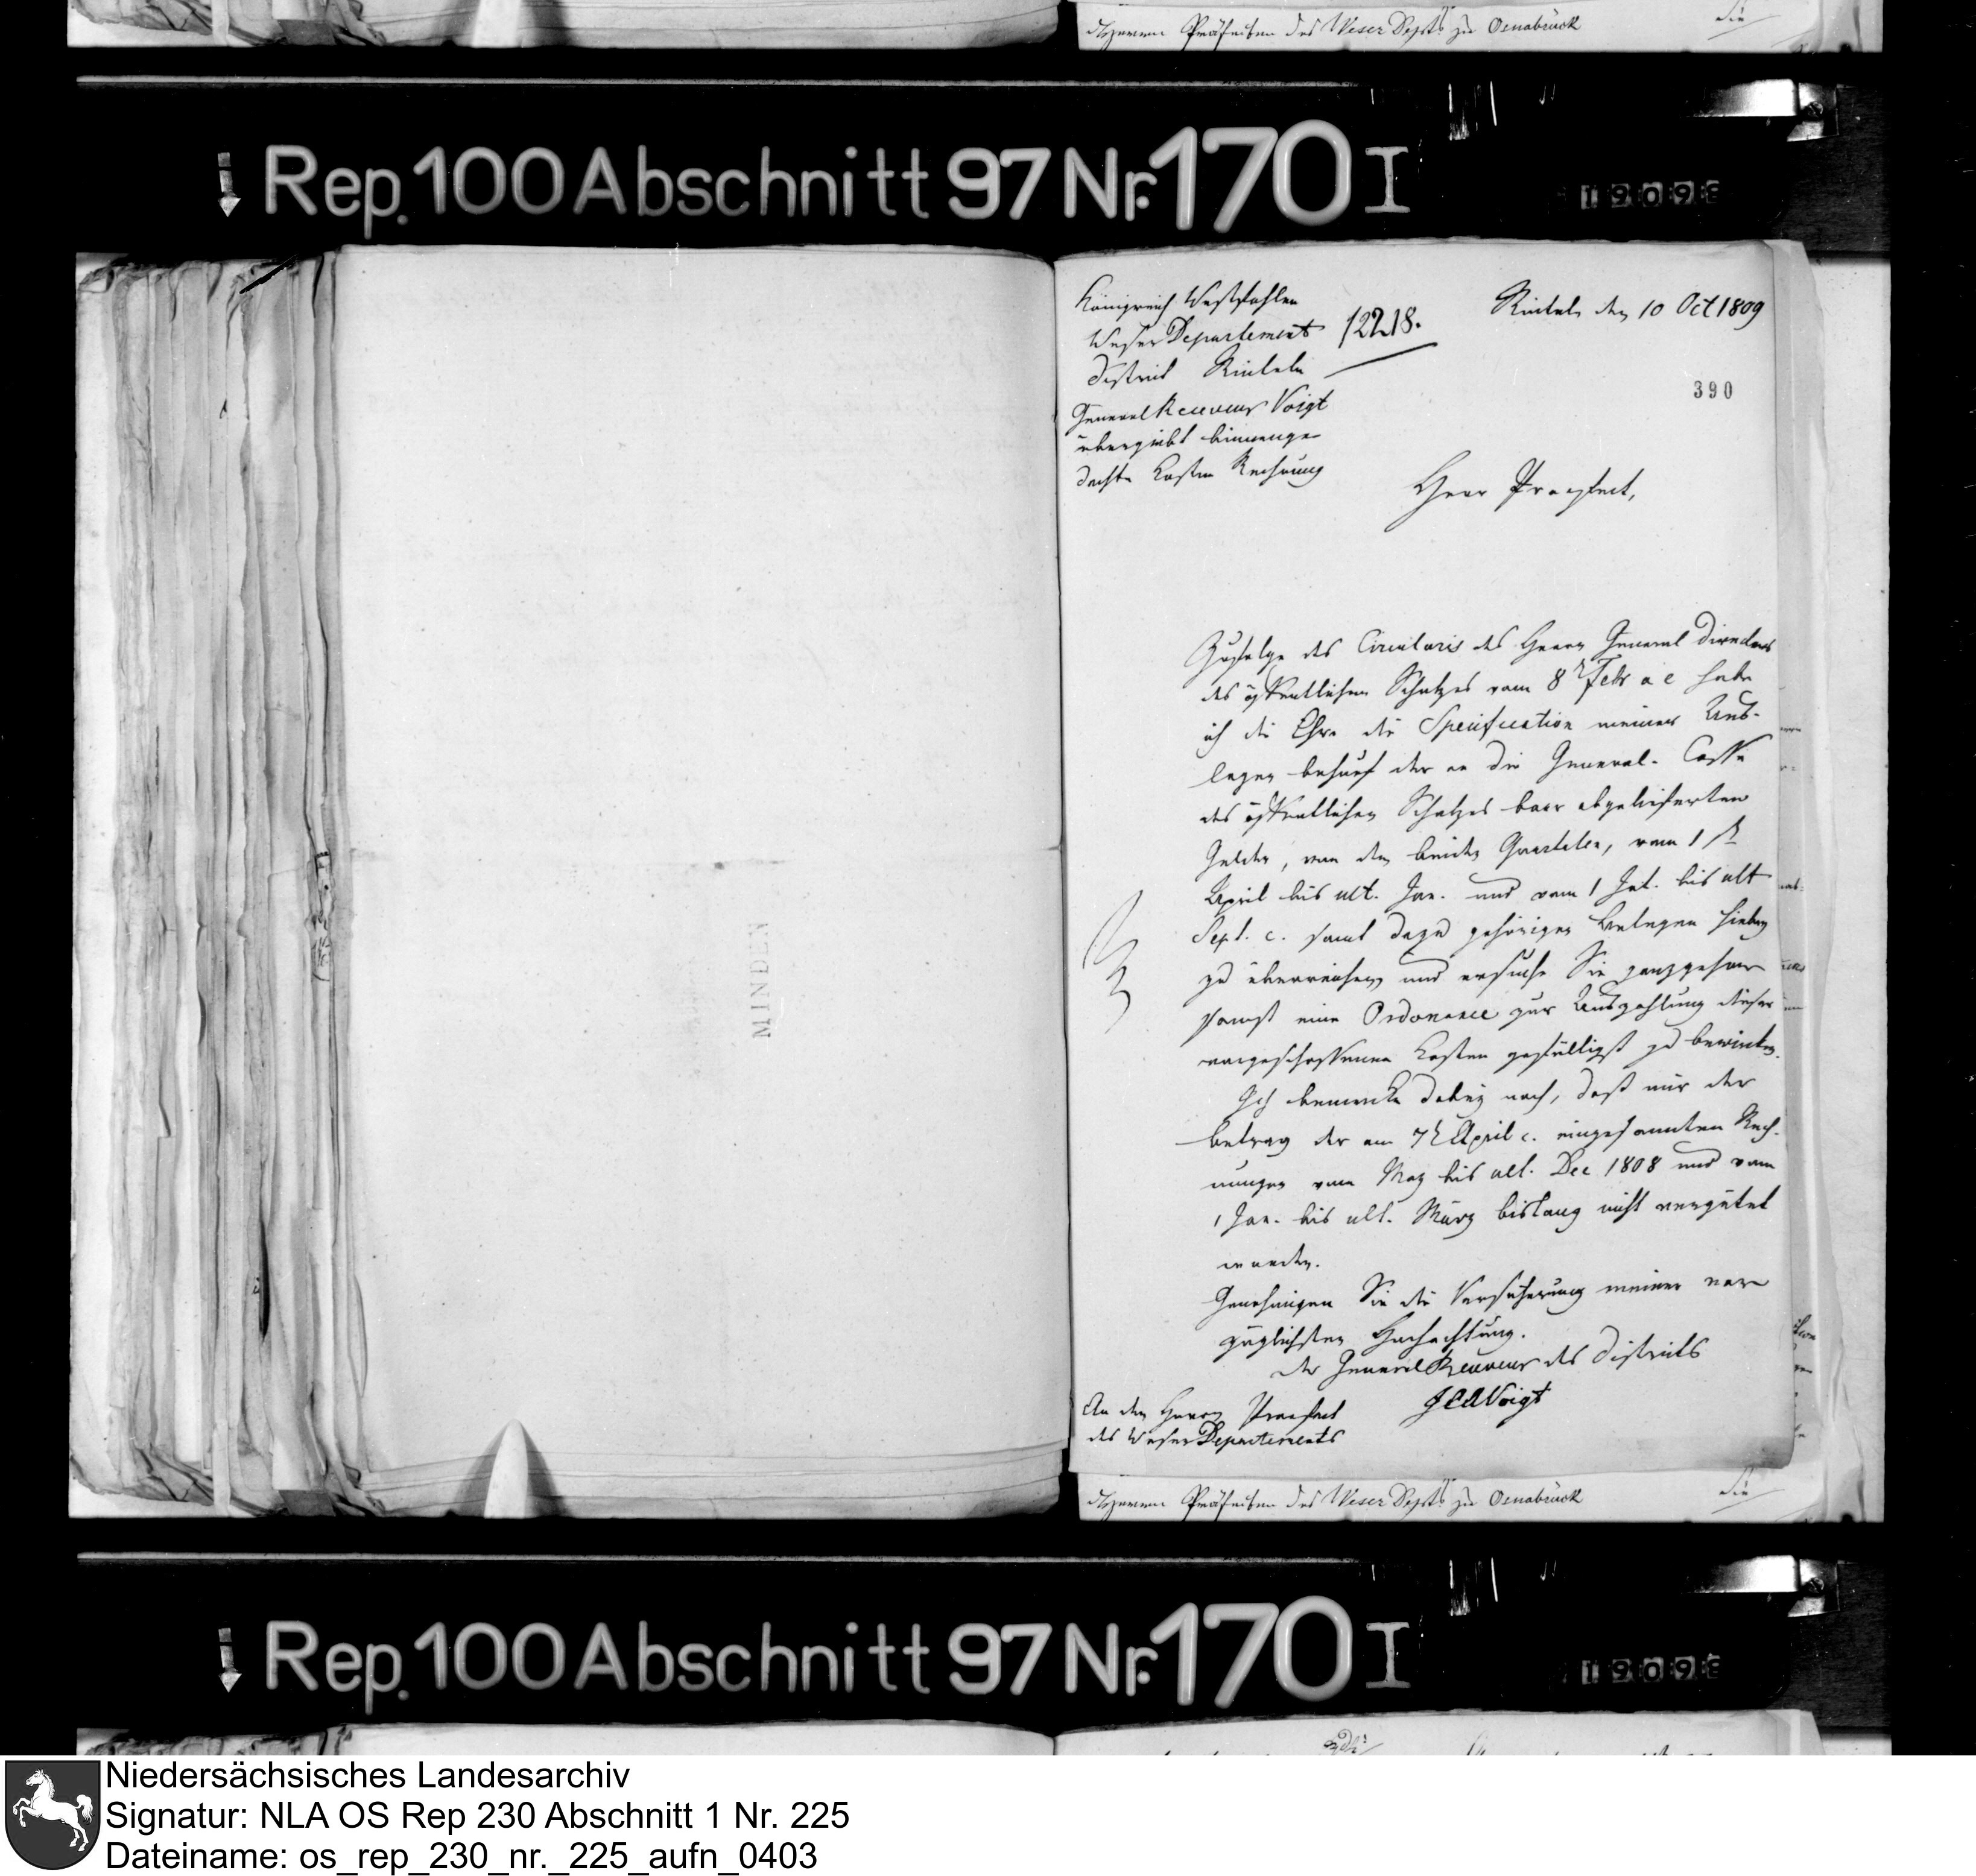 Herrn Präfecten des Weser Depts. zu Osnabrück
die
Rep. 100 Abschnitt 97 Nr. 170 I
19093
Königreich Westfahlen
Weser Departement
District Rinteln
12218.
Rinteln den 10 Oct 1809
390
General Receveur Voigt
übergiebt binnenge-
dachte Kosten Rechnung
Herr Praefect,
Zufolge des Circularis des Herrn General Directors
des öffentlichen Schatzes vom 8t Febr a c habe
ich die Ehre die Specification meiner Aus-
lagen behuef der an die General-Casse
des öffentlichen Schatzes baar abgelieferten
Gelder, von den beiden Quartalen, vom 1 st
April bis ult. Jun. und vom 1 Jul. bis ult
Sept. c. samt dazu gehörigen Belegen hiebey
zu überreichen und ersuche Sie ganz gehor-
samst eine Ordonance zur Auszahlung dieser
vorgeschossenen Kosten gefälligst zu bewirken.
Ich bemerke dabey noch, daß mir der
Betrag der am 7t April c. eingesannten Rech-
nungen vom May bis ult. Dec 1808 und vom
1 Jan. bis ult. März bislang nicht vergütet
worden.
Genehmigen Sie die Versicherung meiner vor-
züglichsten Hochachtung.
der General Receveur des Districts
JCA Voigt
An den Herrn Praefect
des Weser Departements
MINDEN
Herrn Präfecten des Weser Depts. zu Osnabrück
die
Rep. 100 Abschnitt 97 Nr. 170 I
19093
Niedersächsisches Landesarchiv
Signatur: NLA OS Rep 230 Abschnitt 1 Nr. 225
Dateiname: os_rep_230_nr._225_aufn_0403